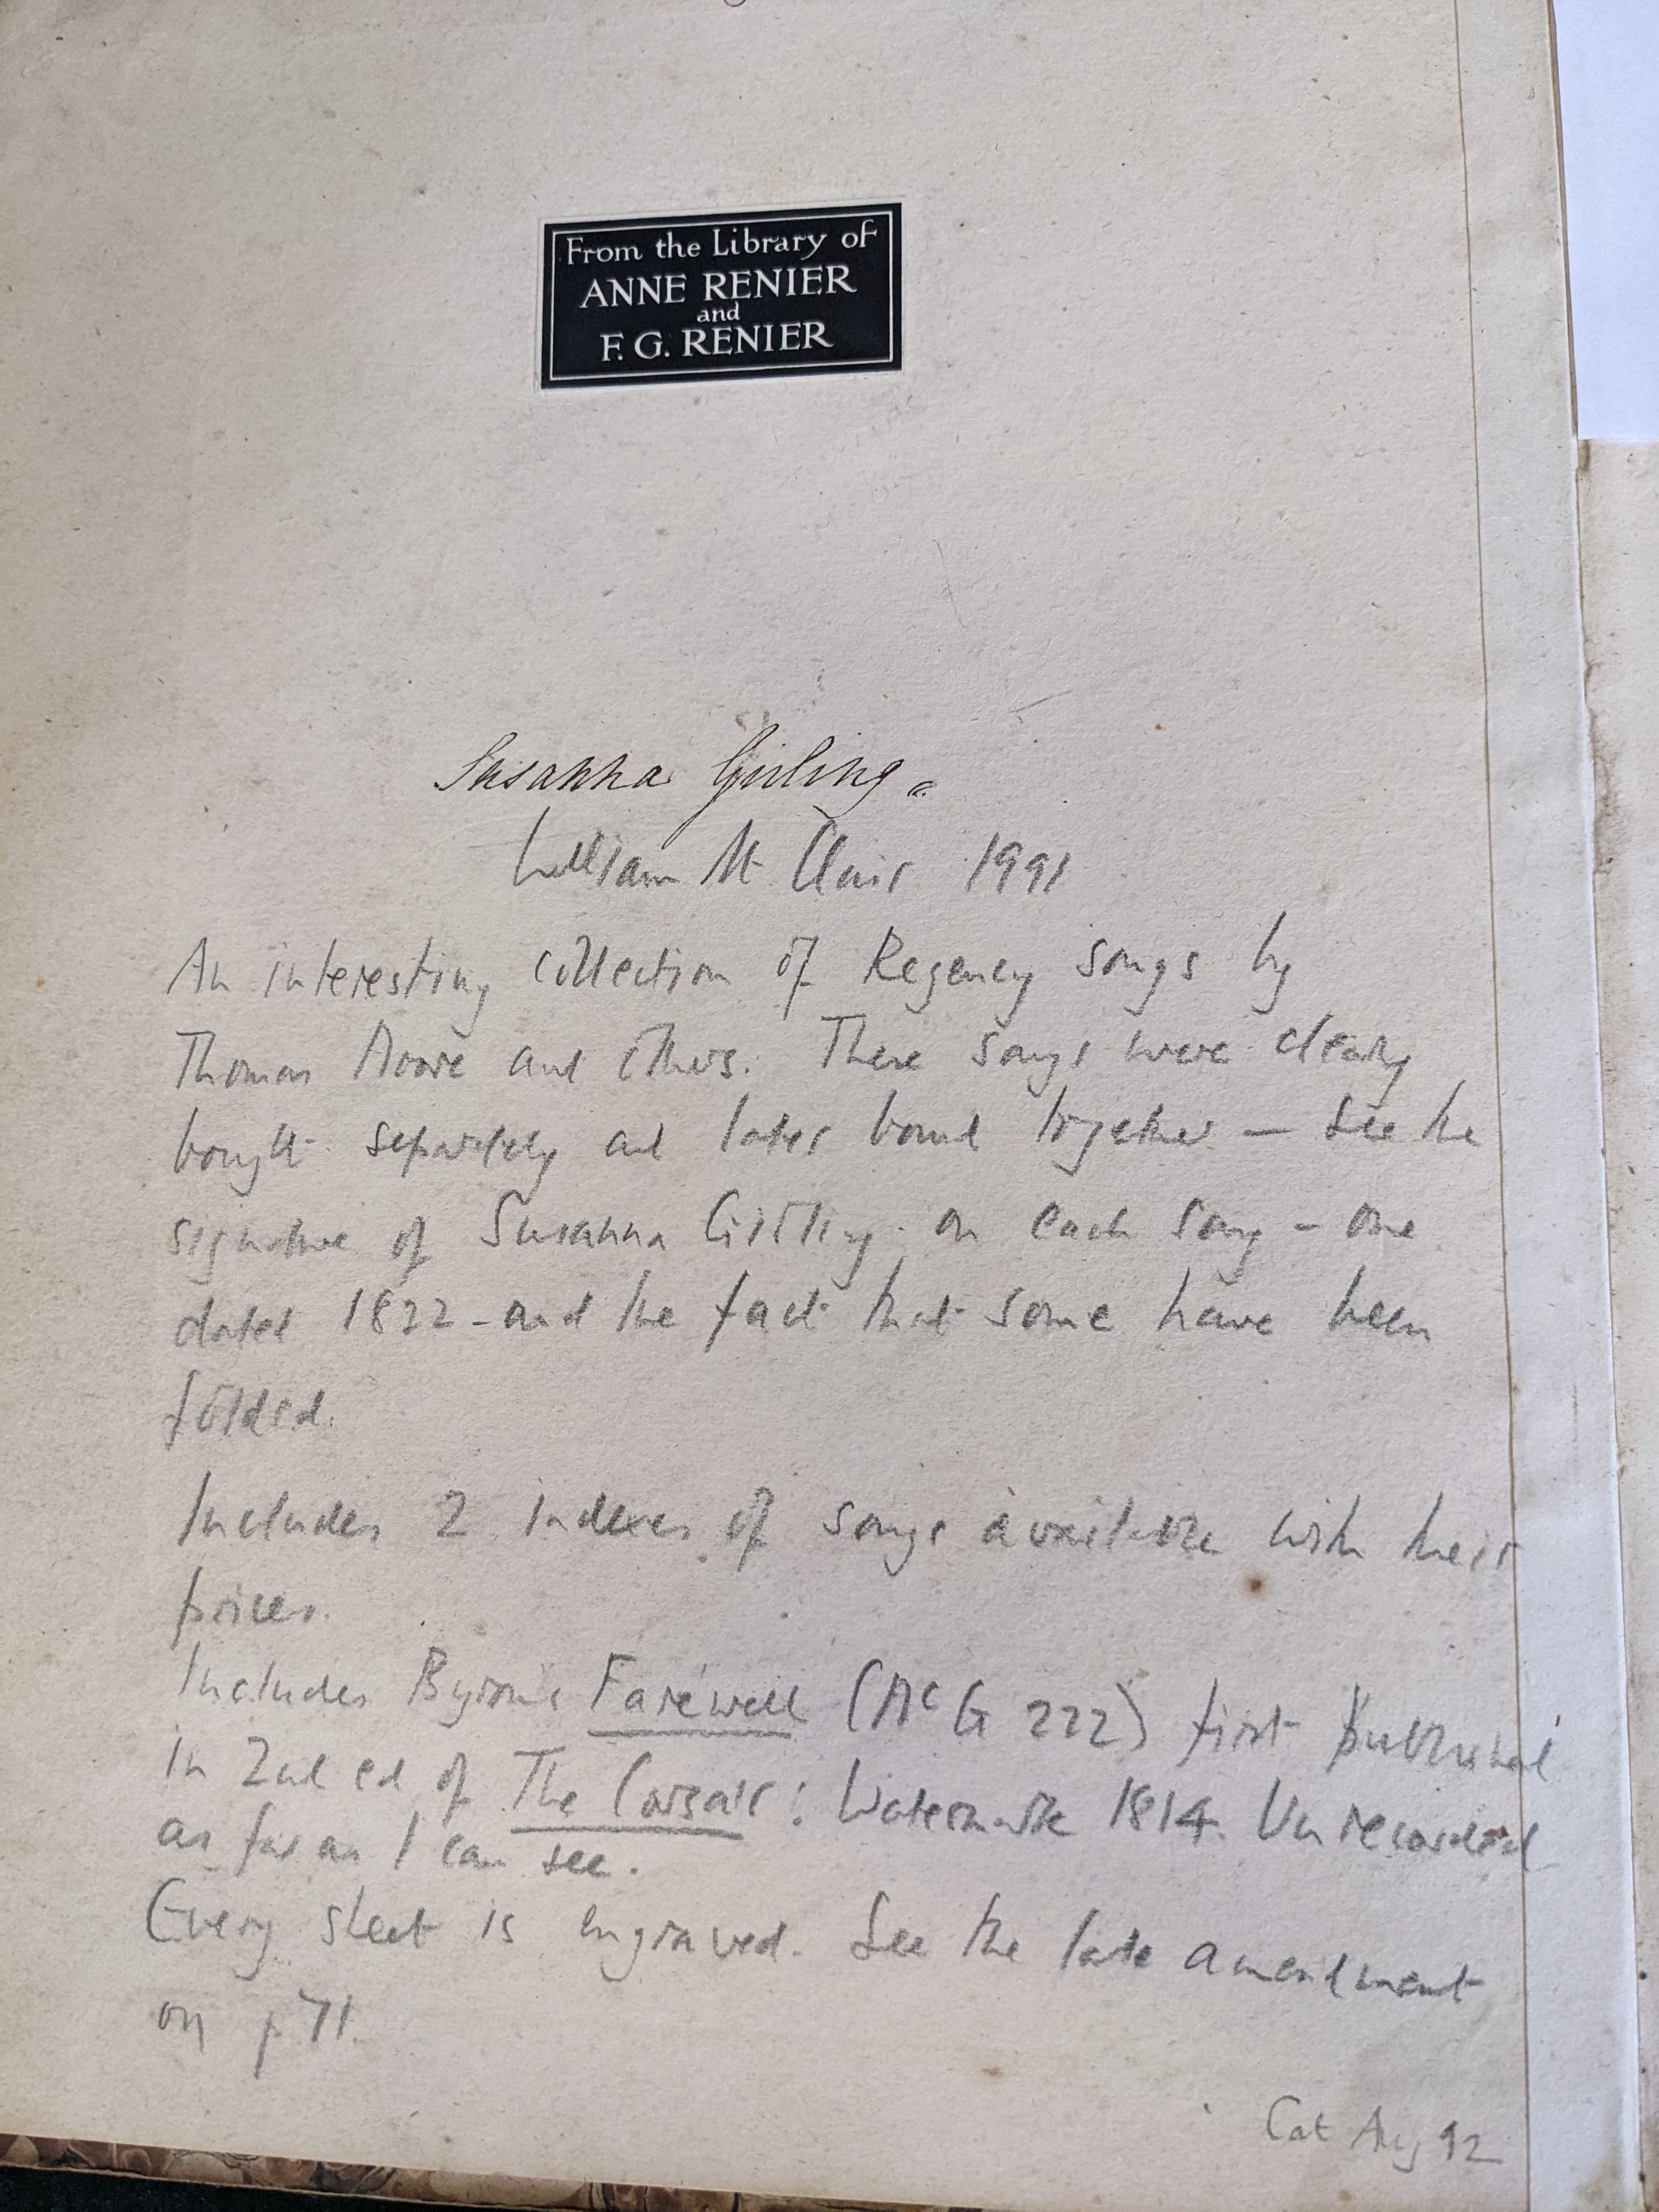 From the Library of
ANNE RENIER
and
F. G. RENIER
Susanna Girling
William St Clair 1991
An interesting collection of Regency songs by
Thomas Moore and others. These songs were clearly
bought separately and later bound together — see the
signature of Susanna Girling on each song - one
dated 1822 - and the fact that some have been
folded.
Includes 2 indexes of songs available with their
prices.
Includes Byron's Farewell (McG 222) first published
in 2nd ed of The Corsair: Watermark 1814. Unrecorded
as far as I can see.
Every sheet is engraved. See the late amendment
on p 71.
Cat Aug 92